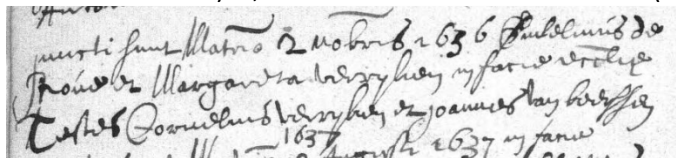 juncti sunt Matrio 2 Nobris 1636 Guilelmus de
et Margareta verryken in facie eccliæ
Testes Cornelius verryken et joannes van beerssen
1637
1637 in facie